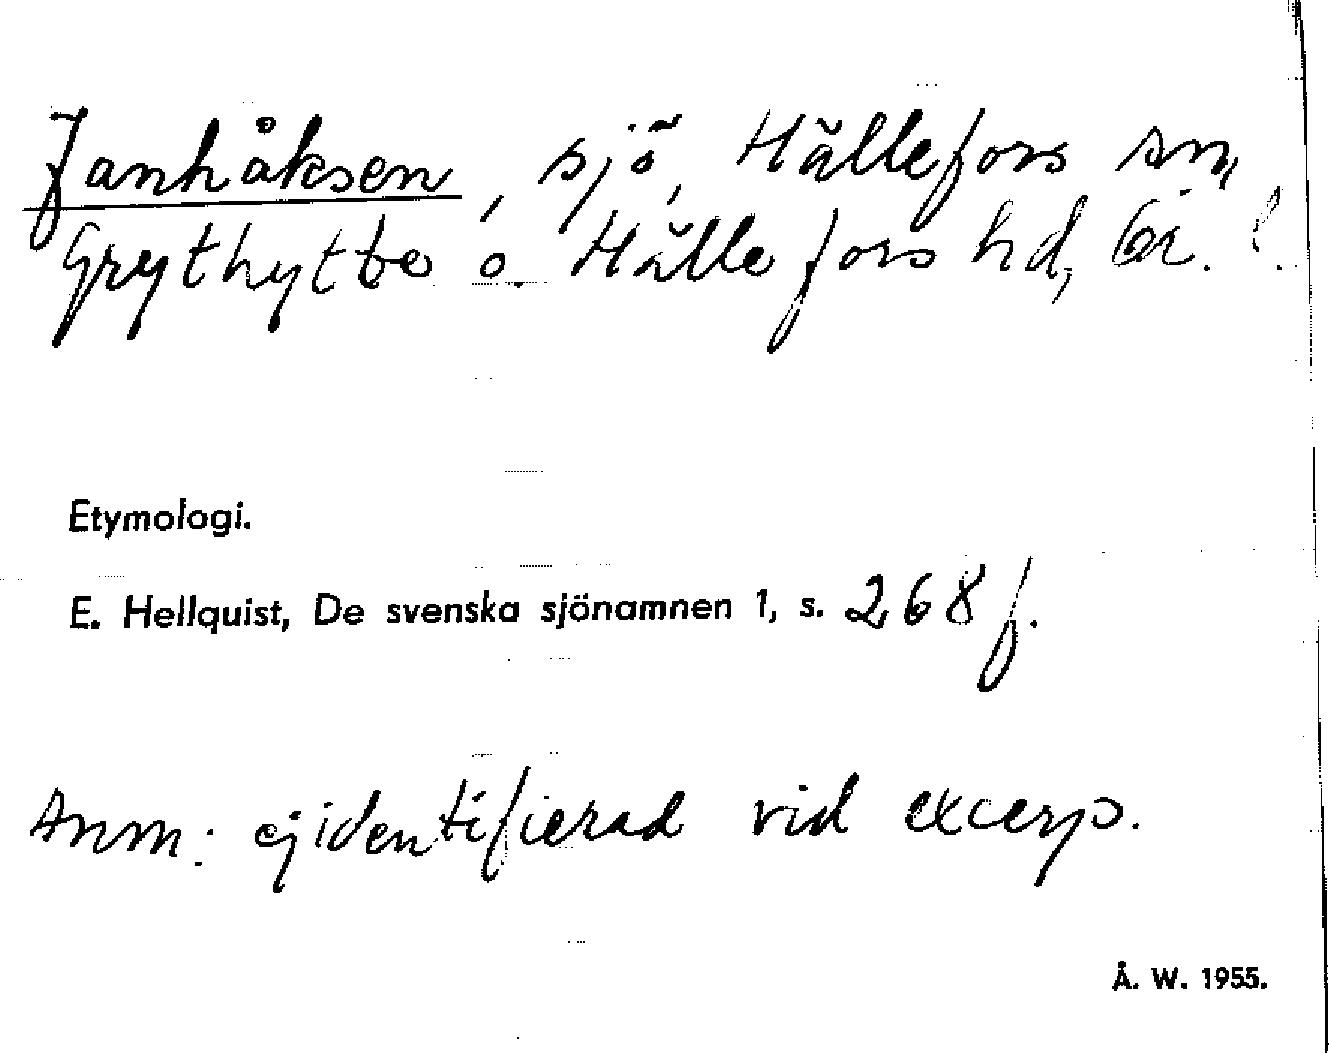 Janhåksen, sjö, Hällefors sn,
Grythytte o. Hällefors hd, Ör. l.
Etymologi.
E. Hellquist, De svenska sjönamnen 1, s. 268 f.
Anm: ej identifierad vid excerp.
Å. W. 1955.